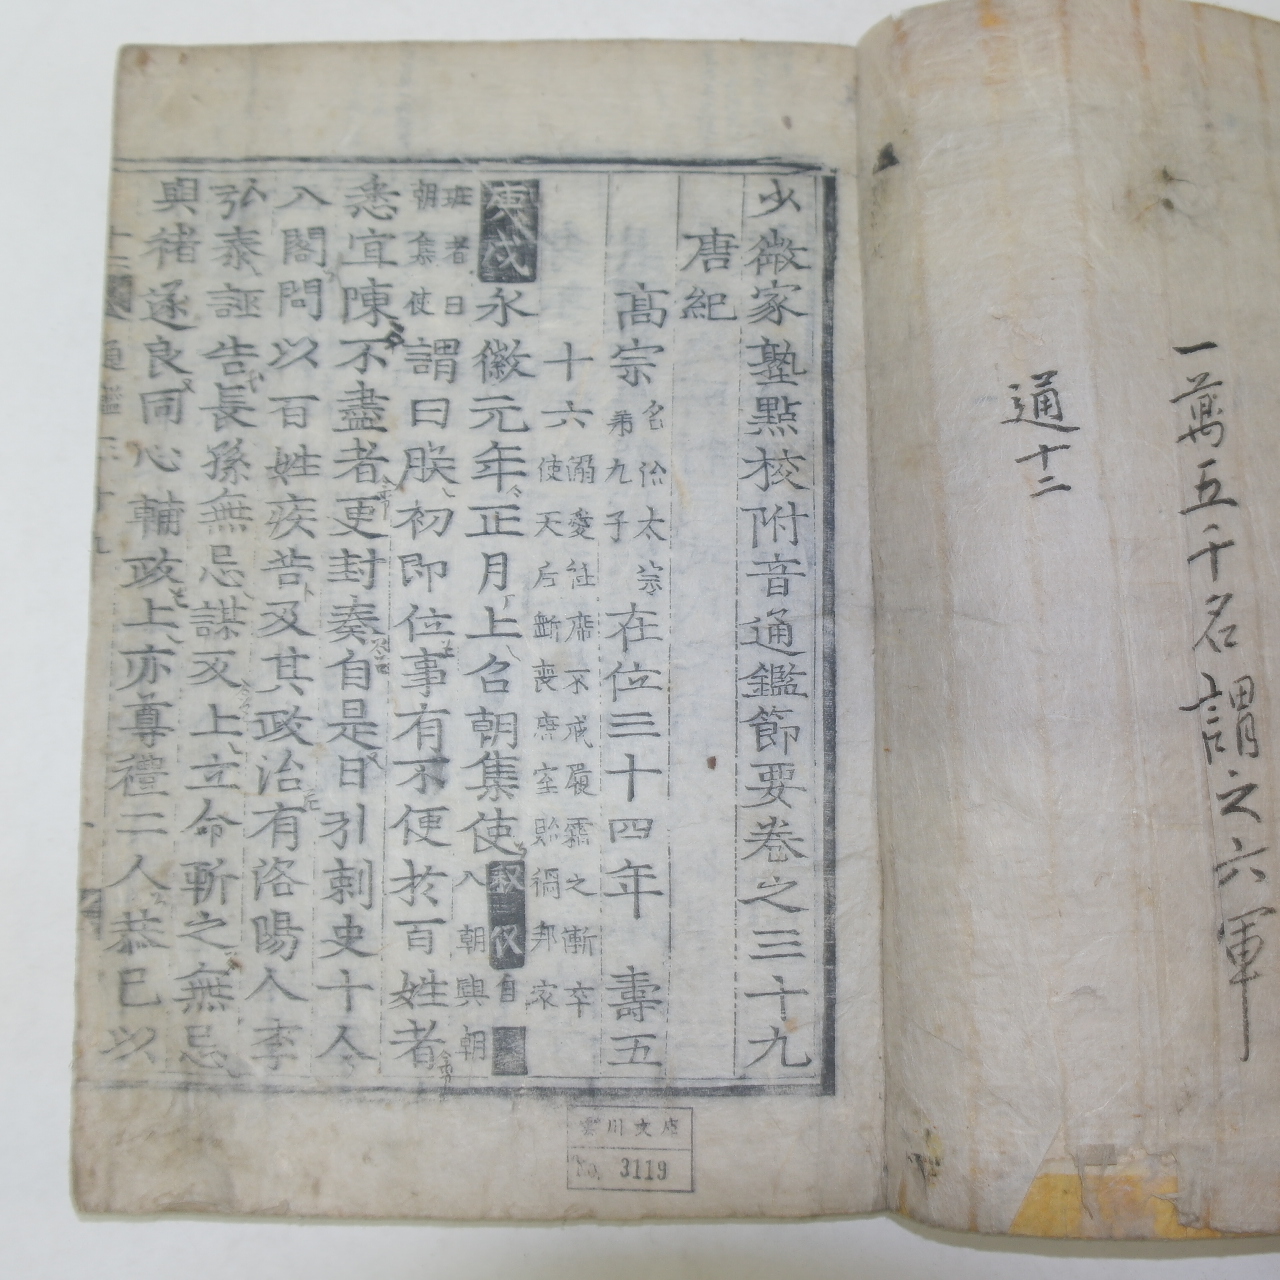 一萬五千名謂之六軍
通十二
少微家塾點校附音通鑑節要卷之三十九
唐紀
高宗 名治太宗第九子 在位三十四年 壽五
十六 溺愛衽席不戒履霜之漸卒使天后斷喪唐室貽禍邦家
庚戌 永徽元年正月上召朝集使 入朝與朝
班者曰朝集使 謂曰朕初即位事有不便於百姓者
悉宜陳不盡者更封奏自是日引刺史十人
入閤問以百姓疾苦及其政治有洛陽人李
弘泰誣告長孫無忌謀反上立命斬之無忌
與褚遂良同心輔政上亦尊禮二人恭己以
文庫
No. 3119